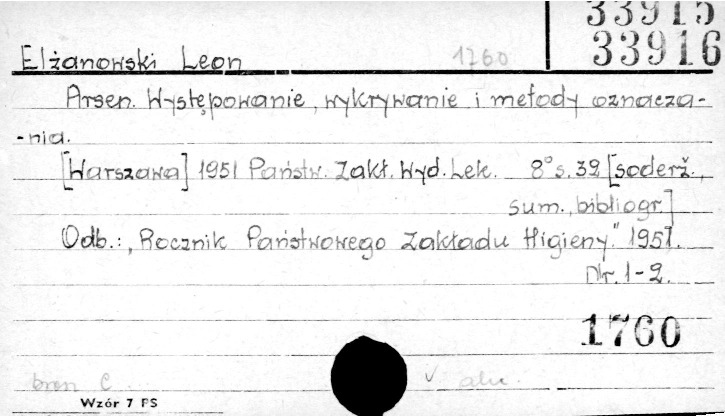 33915
Elżanowski Leon 1760 33916
Arsen. Występowanie, wykrywanie i metody oznacza-
-nia.
[Warszawa] 1951 Państw. Zakł. Wyd. Lek. 8° s. 32 [soderž.,
sum., bibliogr.]
Odb.: „Rocznik Państwowego Zakładu Higieny." 1951.
Nr. 1-2.
1760
Wzór 7 PS